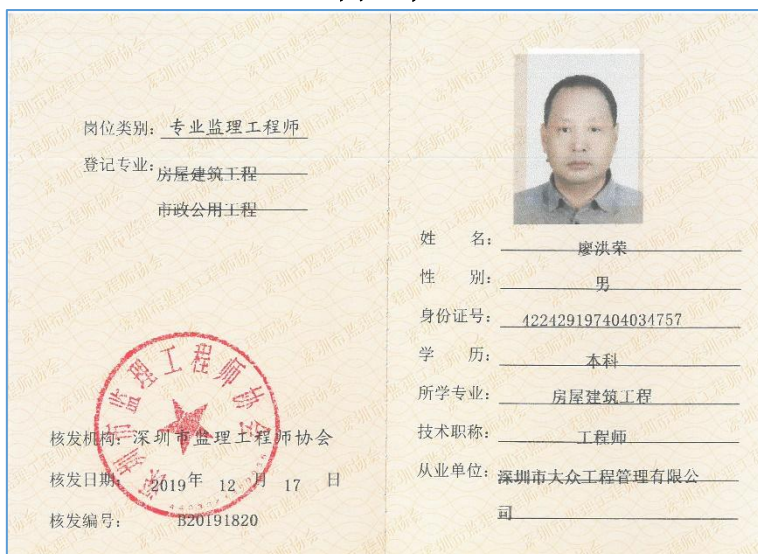 岗位类别: 专业监理工程师
登记专业: 房屋建筑工程
市政公用工程
核发机构: 深圳市监理工程师协会
核发日期: 2019年 12 月 17 日
核发编号: B20191820
深圳市监理工程师协会
姓 名: 廖洪荣
性 别: 男
身份证号: 422429197404034757
学 历: 本科
所学专业: 房屋建筑工程
技术职称: 工程师
从业单位: 深圳市大众工程管理有限公
司